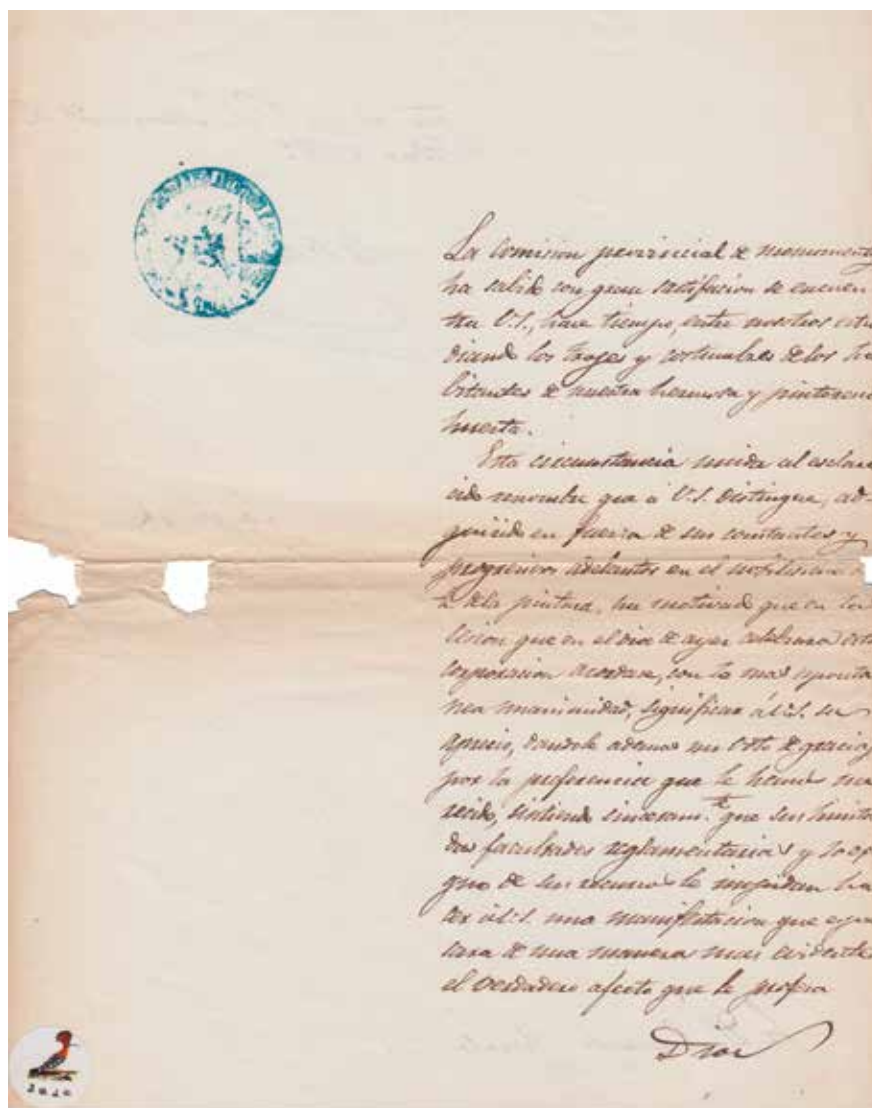 La Comision provincial de monumento
ha sabido con gran satisfacion se encuen
tra V.S., hace tiempo, entre nosotros estu
diando los trages y costumbres de los ha
bitantes de nuestra hermosa y pintoresca
huerta.
Esta circunstancia unida al esclare
cido renombre que a V.S. distingue, ad-
quirido en fuerza de sus constantes y
progresivos adelantos en el
de la pintura, ha motivado que en la
sesion que en el dia de ayer celebrara esta
Corporacion acordase, con la mas esponta
nea unanimidad, significar á V.S. su
aprecio, dandole ademas un voto de gracias
por la preferencia que le hemos me
recido, sintiendo sinceram.te que sus limita
das facultades reglamentarias y lo exi
guo de sus recursos le impidan ha
cer á V.S. una manifestacion que espre
sara de una manera mas evidente
el verdadero afecto que le profesa
Dios
2020